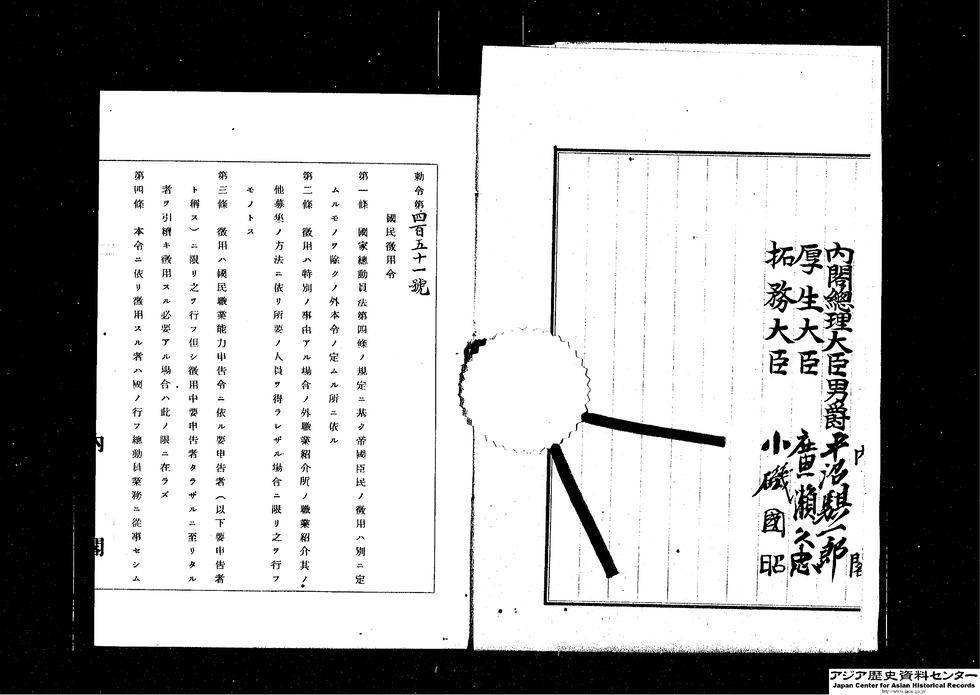 内閣總理大臣男爵平沼騏一郎
厚生大臣 廣瀬久忠
拓務大臣 小磯國昭
内
閣
勅令第四百五十一號
國民徴用令
第一條 國家總動員法第四條ノ規定ニ基ク帝國臣民ノ徴用ハ別ニ定
ムルモノヲ除クノ外本令ノ定ムル所ニ依ル
第二條 徴用ハ特別ノ事由アル場合ノ外職業紹介所ノ職業紹介其ノ
他募集ノ方法ニ依リ所要ノ人員ヲ得ラレザル場合ニ限リ之ヲ行フ
モノトス
第三條 徴用ハ國民職業能力申告令ニ依ル要申告者(以下要申告者
ト稱ス)ニ限リ之ヲ行フ但シ徴用中要申告者タラザルニ至リタル
者ヲ引續キ徴用スル必要アル場合ハ此ノ限ニ在ラズ
第四條 本令ニ依リ徴用スル者ハ國ノ行フ總動員業務ニ從事セシム
内
閣
アジア歴史資料センター
Japan Center for Asian Historical Records
http://www.jacar.go.jp/